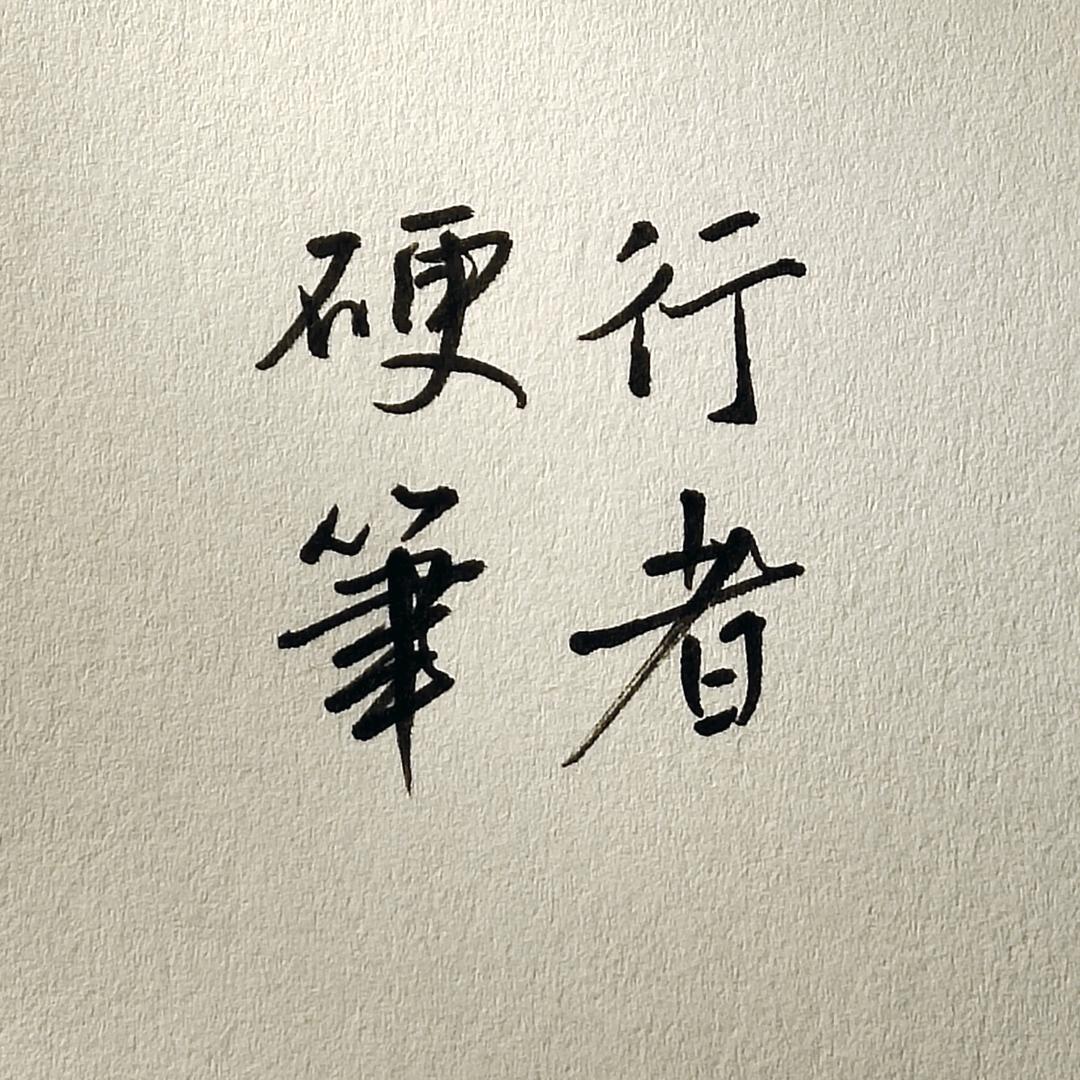 硬筆
行者